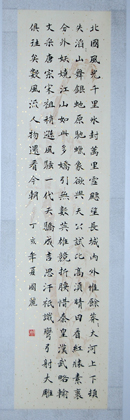 北國風光千里冰封萬里雪飄望長城內外惟餘莽大河上下頓
失滔山舞銀蛇原馳蠟象欲與天公試比高須晴日看紅妝素裹
分外妖嬈江山如此多嬌引無數英雄競折腰惜秦皇漢武略輸
文采唐宗宋祖稍遜風騷一代天驕成吉思汗祇識彎弓射大雕
俱往矣數風流人物還看今朝 丁亥年夏國